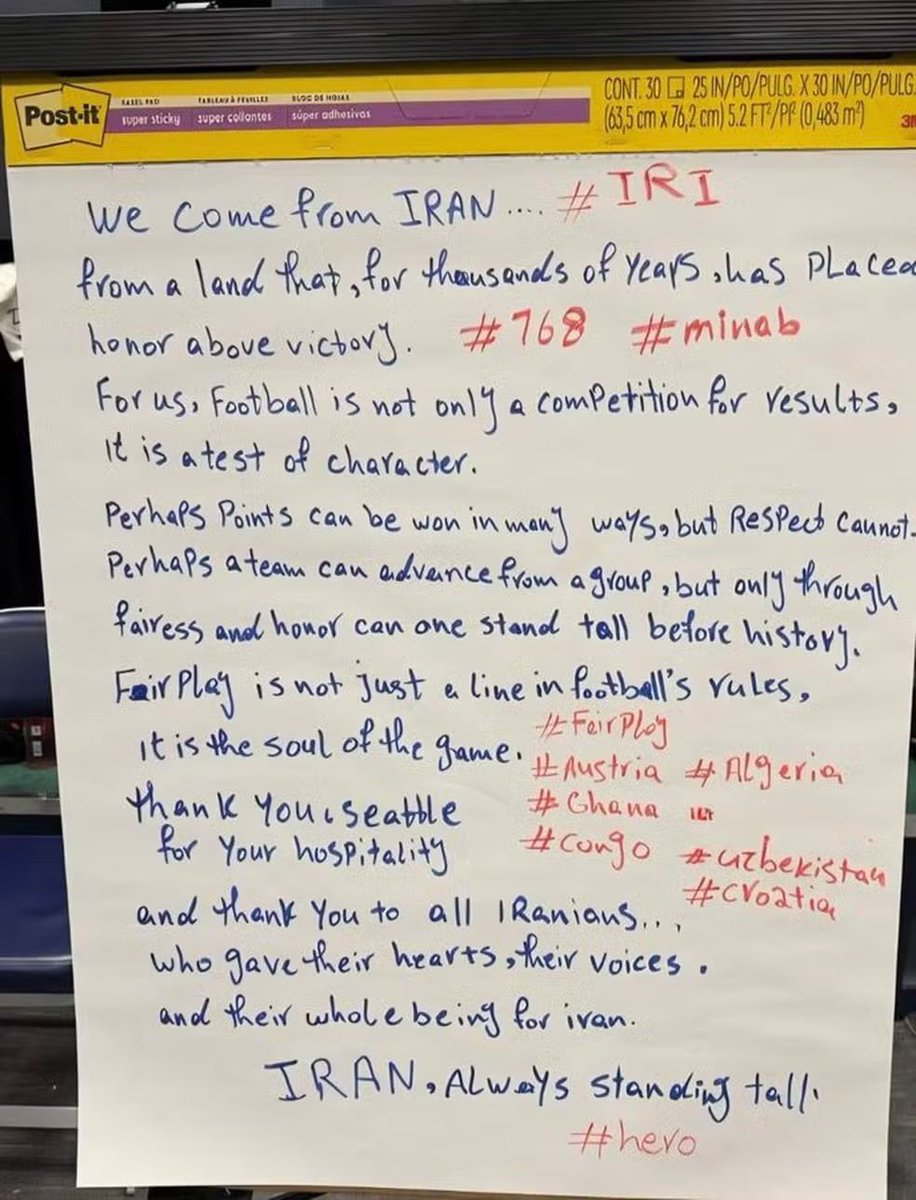 Post-it
EASEL PAD TABLEAU À FEUILLES BLOC DE HOJAS
super sticky super collantes súper adhesivas
CONT. 30 25 IN/PO/PULG. X 30 IN/PO/PULG.
(63,5 cm x 76,2 cm) 5.2 FT²/PI² (0,483 m²) 3M
We come from IRAN.... #IRI
from a land that, for thousands of years, has placed
honor above victory. #768 #minab
For us, Football is not only a competition for results,
it is a test of character.
Perhaps Points can be won in many ways, but Respect cannot.
Perhaps a team can advance from a group, but only through
fairess and honor can one stand tall before history.
Fair Play is not just a line in football's rules,
it is the soul of the game.
#FairPlay
#Austria #Algeria
#Ghana
#Congo #uzbekistan
#Croatia
thank you, seattle
for your hospitality
and thank you to all IRanians...,
who gave their hearts, their voices.
and their whole being for iran.
IRAN, Always standing tall.
#hero